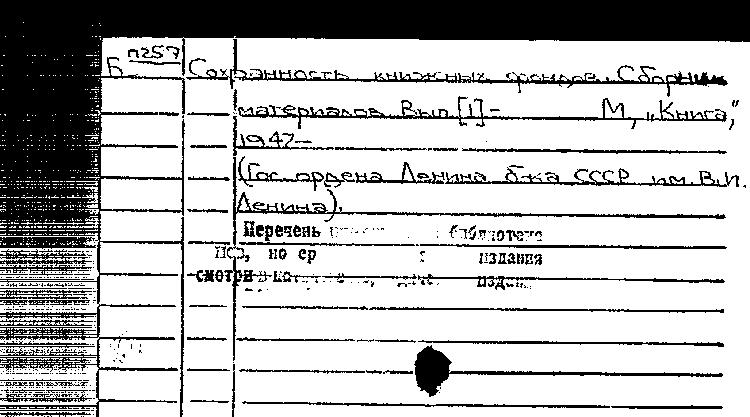 Б пг57
Сохранность книжных фондов. Сборник
материалов. Вып. [1]- М, „Книга“,
1947-
(Гос. ордена Ленина б-ка СССР им. В.И.
Ленина).
Перечень библиотеке
но ср издания
смотри